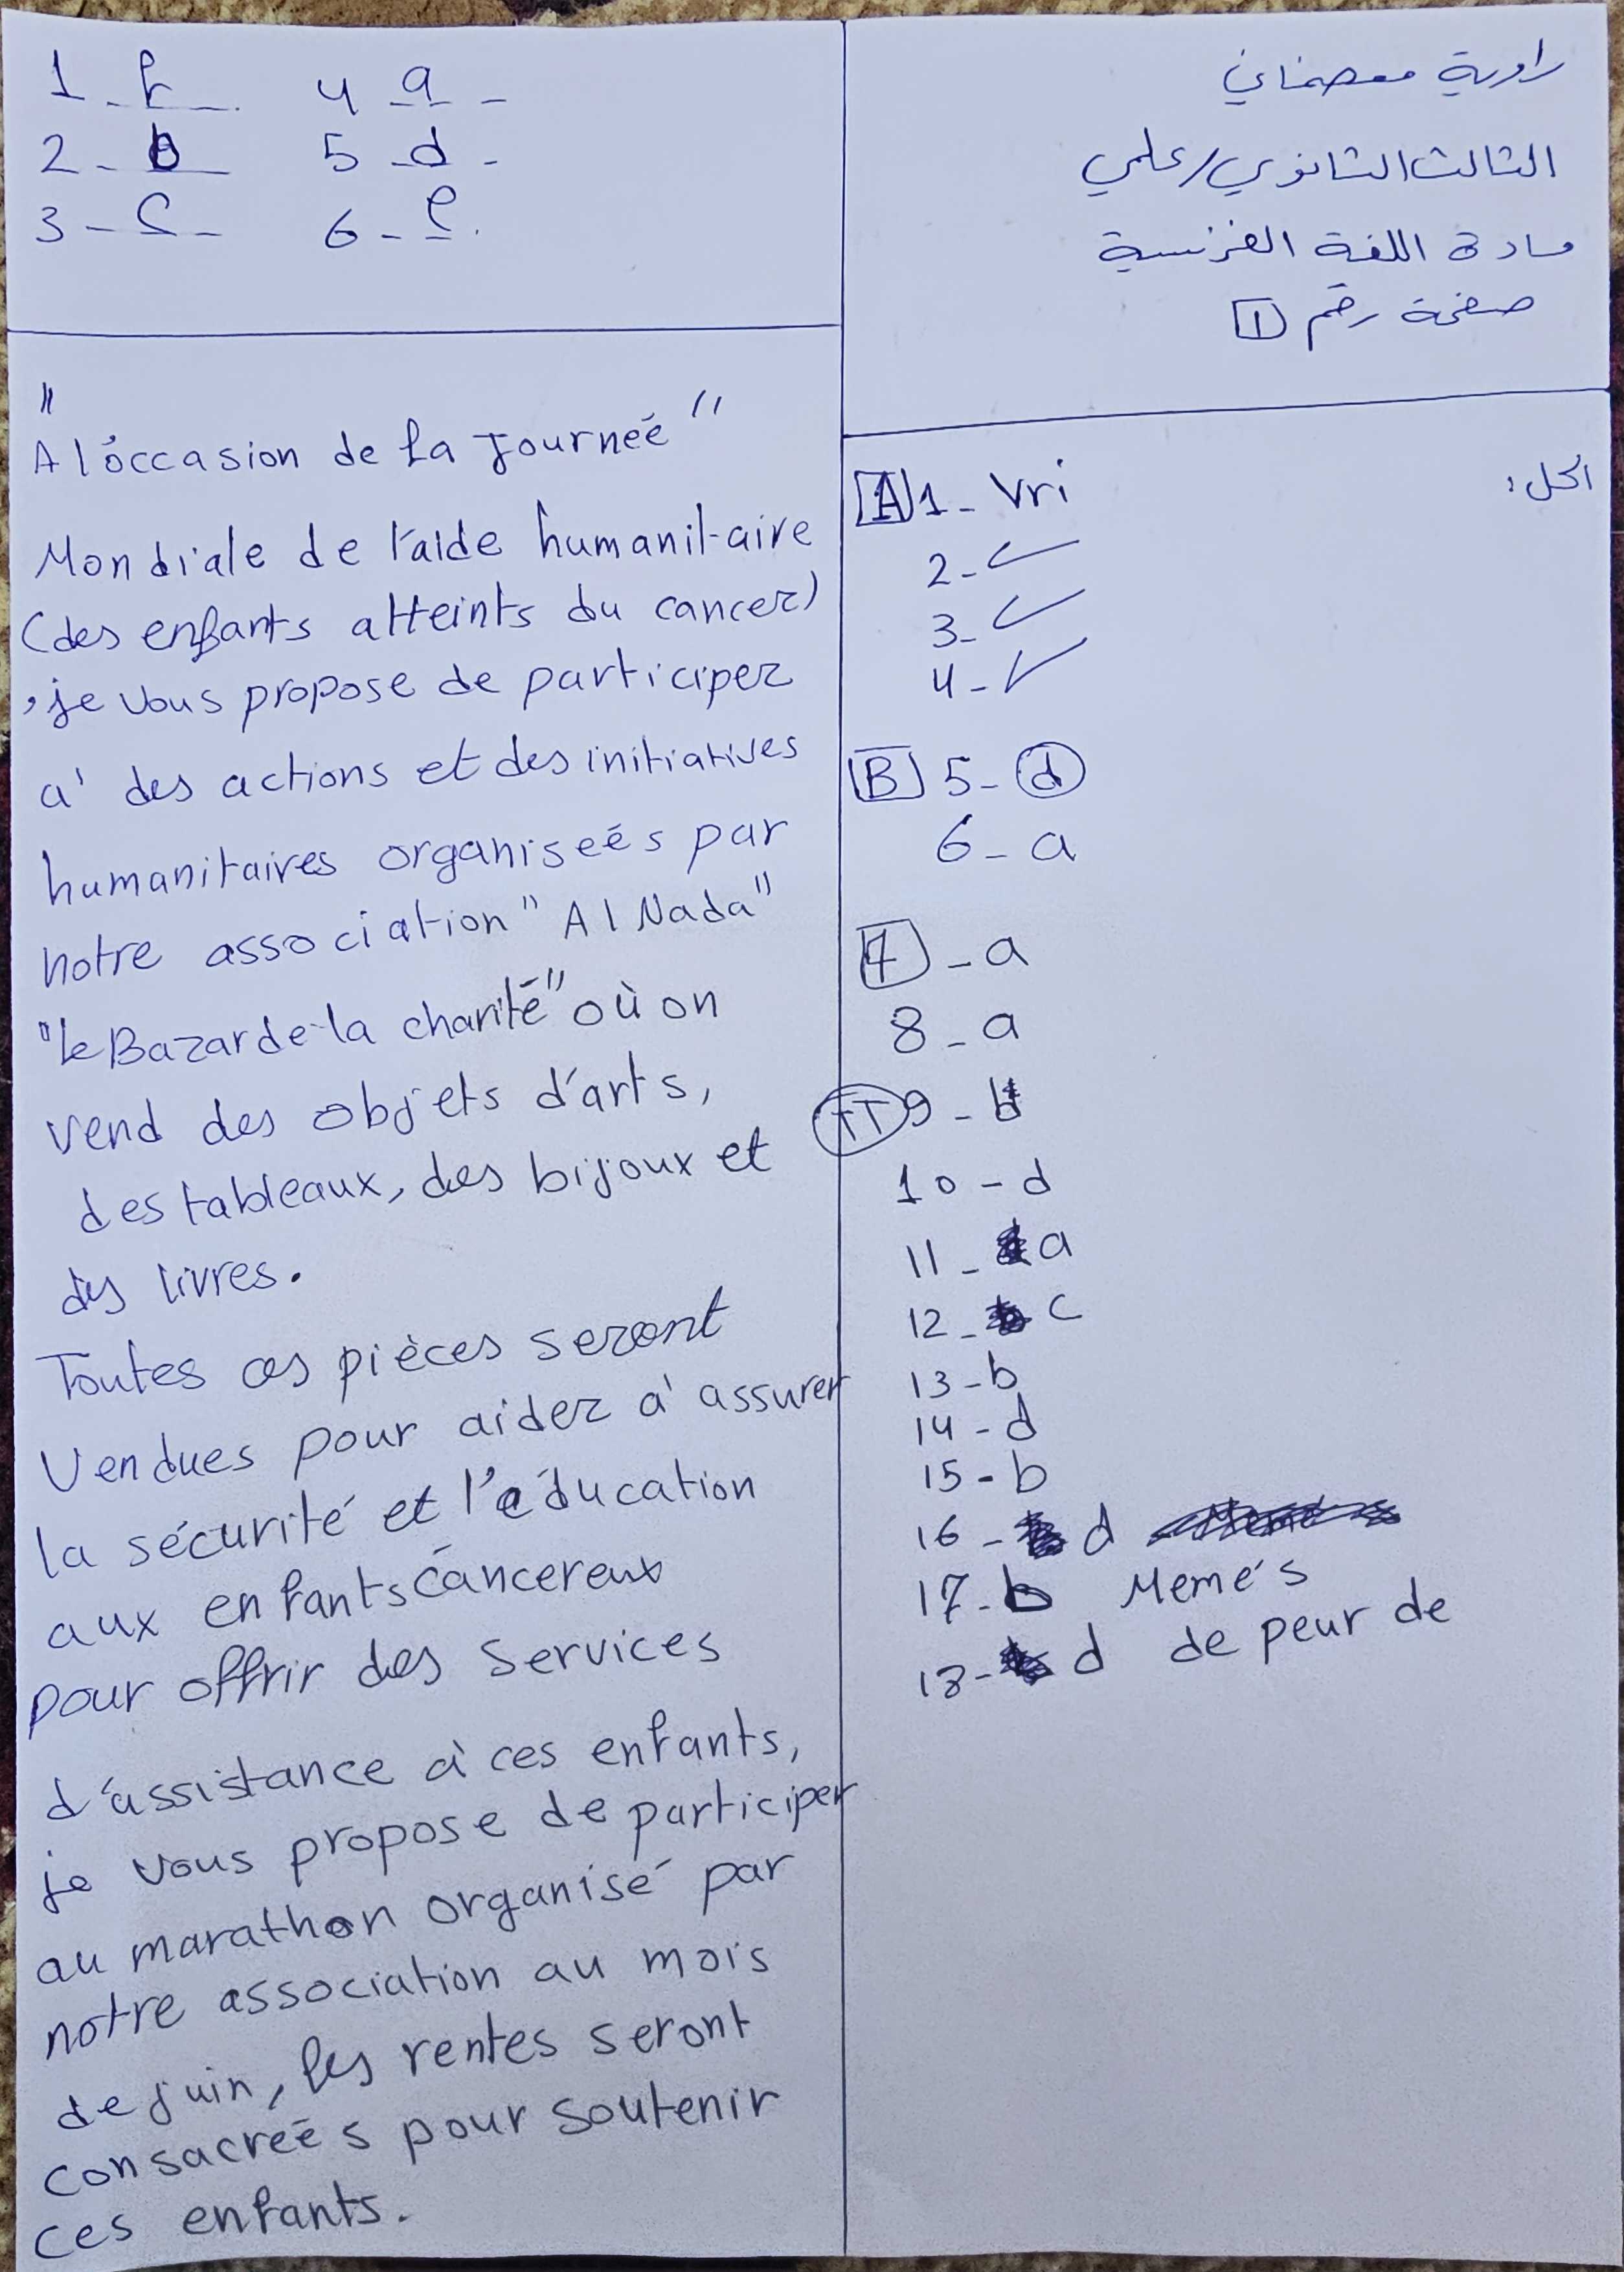 راوية معصماني
الثالث الثانوي/علمي
مادة اللغة الفرنسية
صفحة رقم 1
الحل:
A 1- Vri
2- ✓
3- ✓
4- ✓
B 5- d
6- a
7 - a
8 - a
II 9 - b
10 - d
11 - a
12 - c
13 - b
14 - d
15 - b
16 - d
17 - b Memés
18 - d de peur de
1 - f 4 - a -
2 - b 5 - d -
3 - c - 6 - e.
"
A l'occasion de la Journeé"
Mondiale de l'aide humanitaire
(des enfants atteints du cancer)
, je vous propose de participer
a' des actions et des initiatives
humanitaires organiseés par
notre association "Al Nada"
"Le Bazar de la charité" où on
vend des objets d'arts,
des tableaux, des bijoux et
des livres.
Toutes ces pièces seront
Vendues pour aider a' assurer
la sécurité et l'éducation
aux enfants cancereux
pour offrir des services
d'assistance à ces enfants,
je vous propose de participer
au marathon organisé par
notre association au mois
de juin, les rentes seront
consacreés pour soutenir
ces enfants.